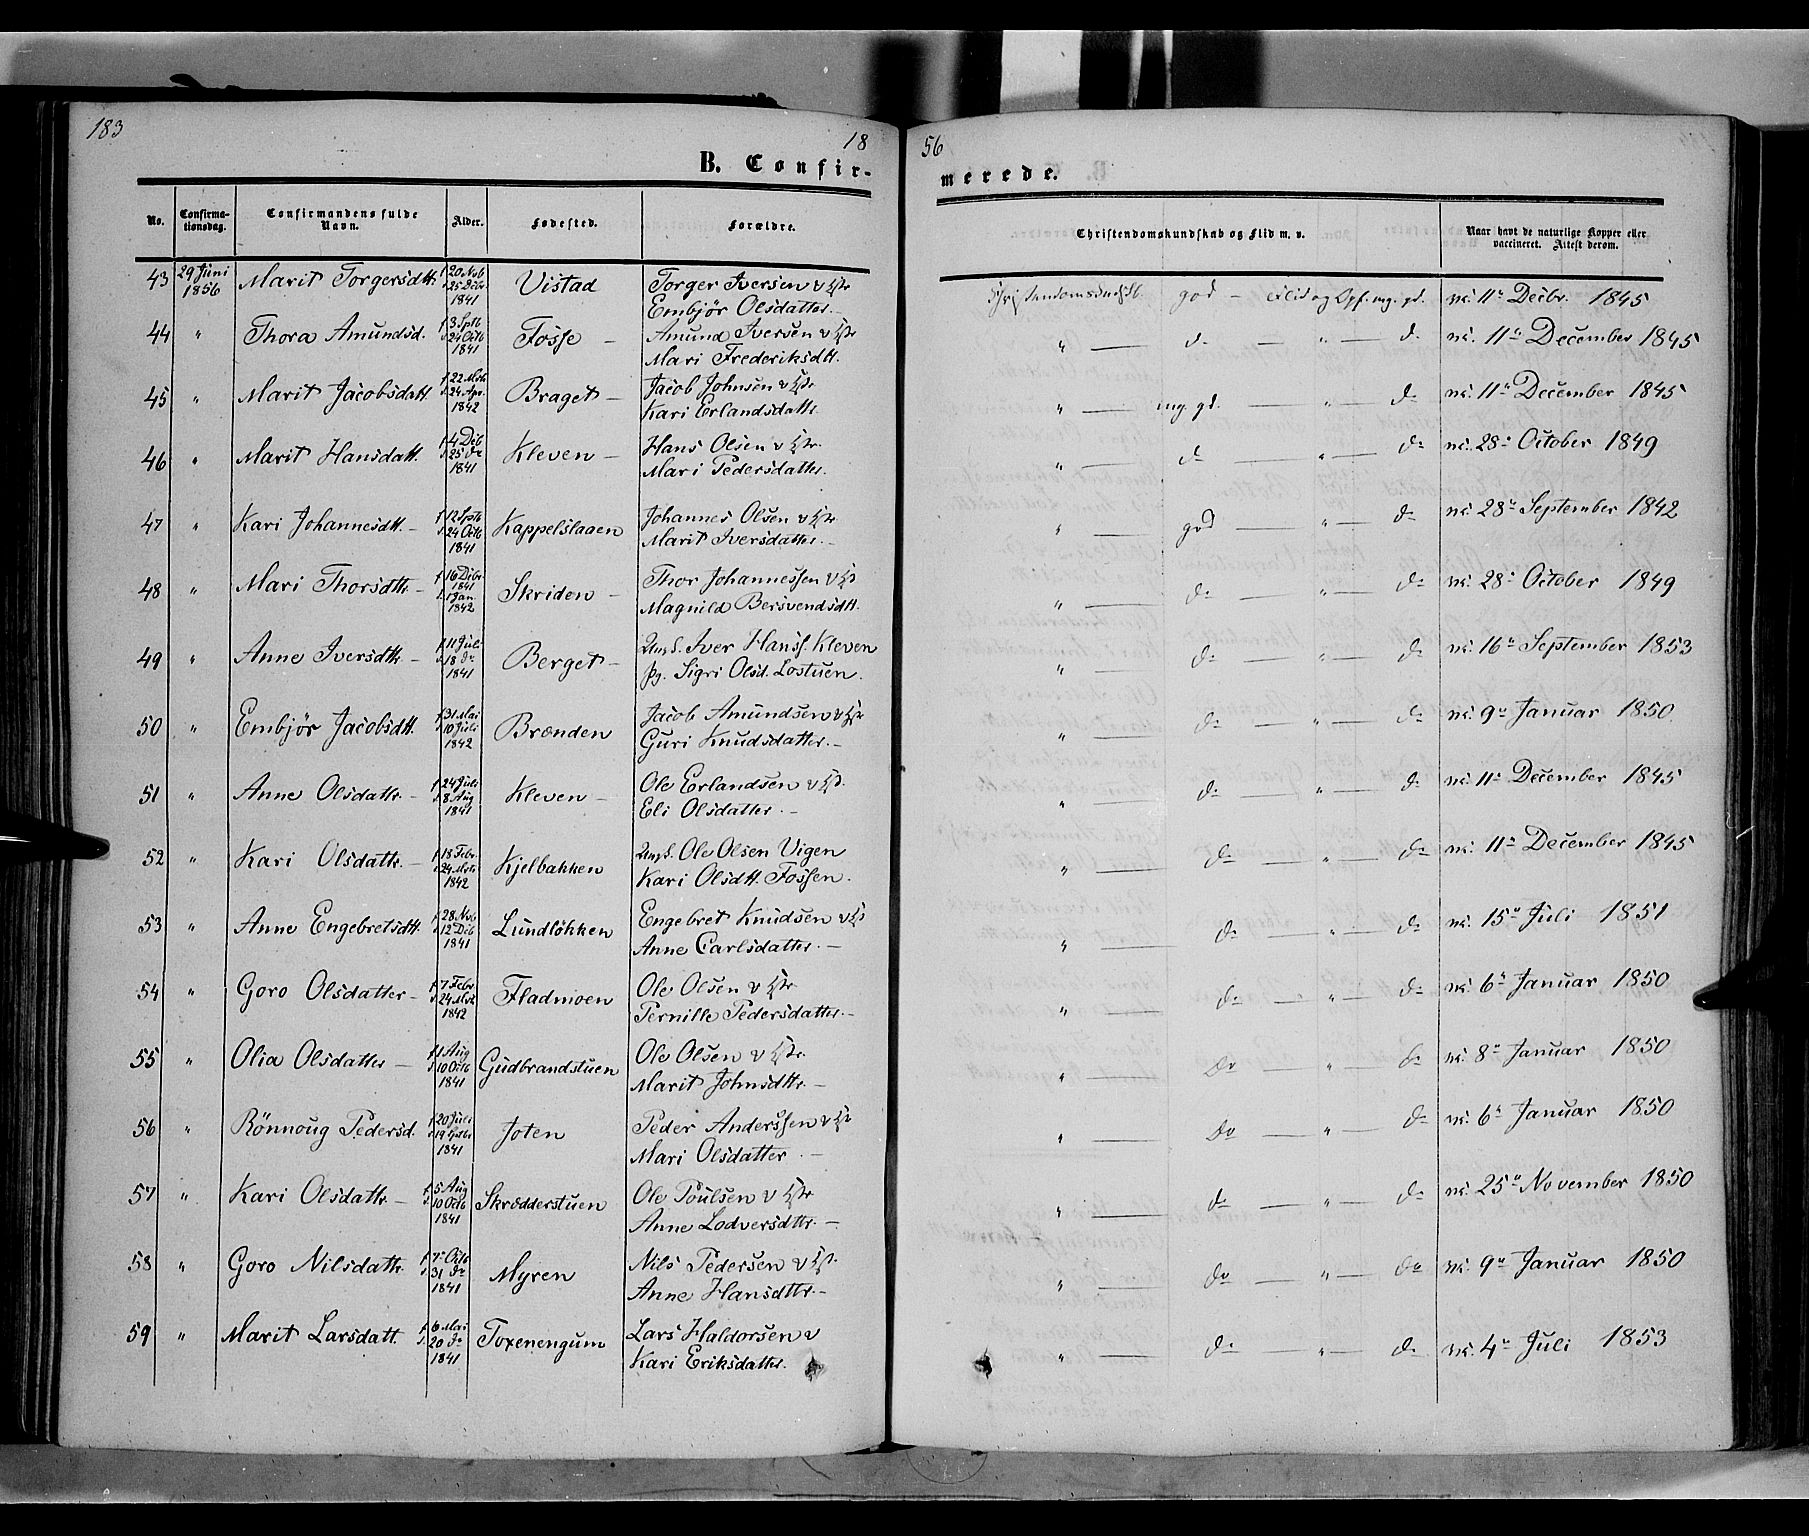 183
18
56
B. Confir-
merede.
No.
Confirma-
tionsdag.
Confirmandens fulde
Navn.
Alder.
Fødested.
Forældre.
Christendomskundskab og Flid m. v.
Naar havt de naturlige Kopper eller
vaccineret. Attest derom.
43 29 Juni 1856 Marit Torgersdtt. f 20 Nvb 25 Debr 1841 Vistad Torger Iversen v
Embjör Olsdatter. god ng. gd. 11te Decbr. 1845
44 " Thora Amundsd. f 3 Sptb 24 Octb 1841 Fosse – Amund Iversen v
Mari Frederiksdtt. " d. " d. 11te December 1845
45 " Marit Jacobsdatt. 22 Mrts 24 Apr. 1842 Braget – Jacob Johnsen v
Kari Erlandsdattr. " mg. gd. " do 11te December 1845
46 " Marit Hansdatt. 4 Deb 25 do 1841 Kleven – Hans Olsen v
Mari Pedersdatter. " do " do 28de October 1849
47 " Kari Johannesdtt. – 12 Sptb 24 Octb 1841 Kappelslaaen Johannes Olsen v
Marit Iversdatter. – " god " do 28de September 1842
48 " Mari Thorsdttr. – 16 Debr 1841 1 Jan. 1842 Skriden – Thor Johannessen v
Magnild Bersvendsdtt. " do " do 28de October 1849
49 " Anne Iversdttr. – 11 Juli 18 do 1841 Berget – Iver Hanss. Kleven
pg. Sigri Olsd. Lostuen. " do " do 16de September 1853
50 " Embjör Jacobsdtt. 31 Mai 10 Juli 1842 Brænden Jacob Amundsen v
Guri Knudsdatter. – " do " do 9de Januar 1850
51 " Anne Olsdattr. – 24 Juli 8 Aug 1841 Kleven – Ole Erlandsen v
Eli Olsdatter. – " do " do 11te December 1845
52 " Kari Olsdattr. – 18 Febr 24 Mrts 1842 Kjelbakken Ole Olsen Vigen
Kari Olsdtt. Fossen. " do " do 11te December 1845
53 " Anne Engebretsdtt. 28 Nvb 12 Deb 1841 Lundløkken Engebret Knudsen v
Anne Carlsdatter. – " do " do 15de Juli 1851
54 " Goro Olsdatter – 7 Febr 24 Mrts 1842 Fladmoen Ole Olsen v
Pernille Pedersdatter. – " do " do 6te Januar 1850
55 " Olia Olsdatter – Aug 10 Octb 1841 Gudbrandstuen Ole Olsen v
Marit Johnsdttr. – " Do " do 8de Januar 1850
56 " Rönnoug Pedersd. 20 Juli 19 Sptbr 1841 Joten Peder Anderssen v
Mari Olsdatter. – " Do " do 6te Januar 1850
57 " Kari Olsdattr. – 5 Aug 10 Octb 1841 Skrædderstuen Ole Poulsen v
Anne Lodversdttr. – " do " do 25de November 1850
58 " Goro Nilsdattr. 7 Octb 31 do 1841 Myren Nils Pedersen v
Anne Hansdttr. – " do " do 9de Januar 1850
59 " Marit Larsdatt. 6 Mai 20 do 1841 Toxenengum Lars Haldorsen v
Kari Eriksdatter. " do " do 4de Juli 1853